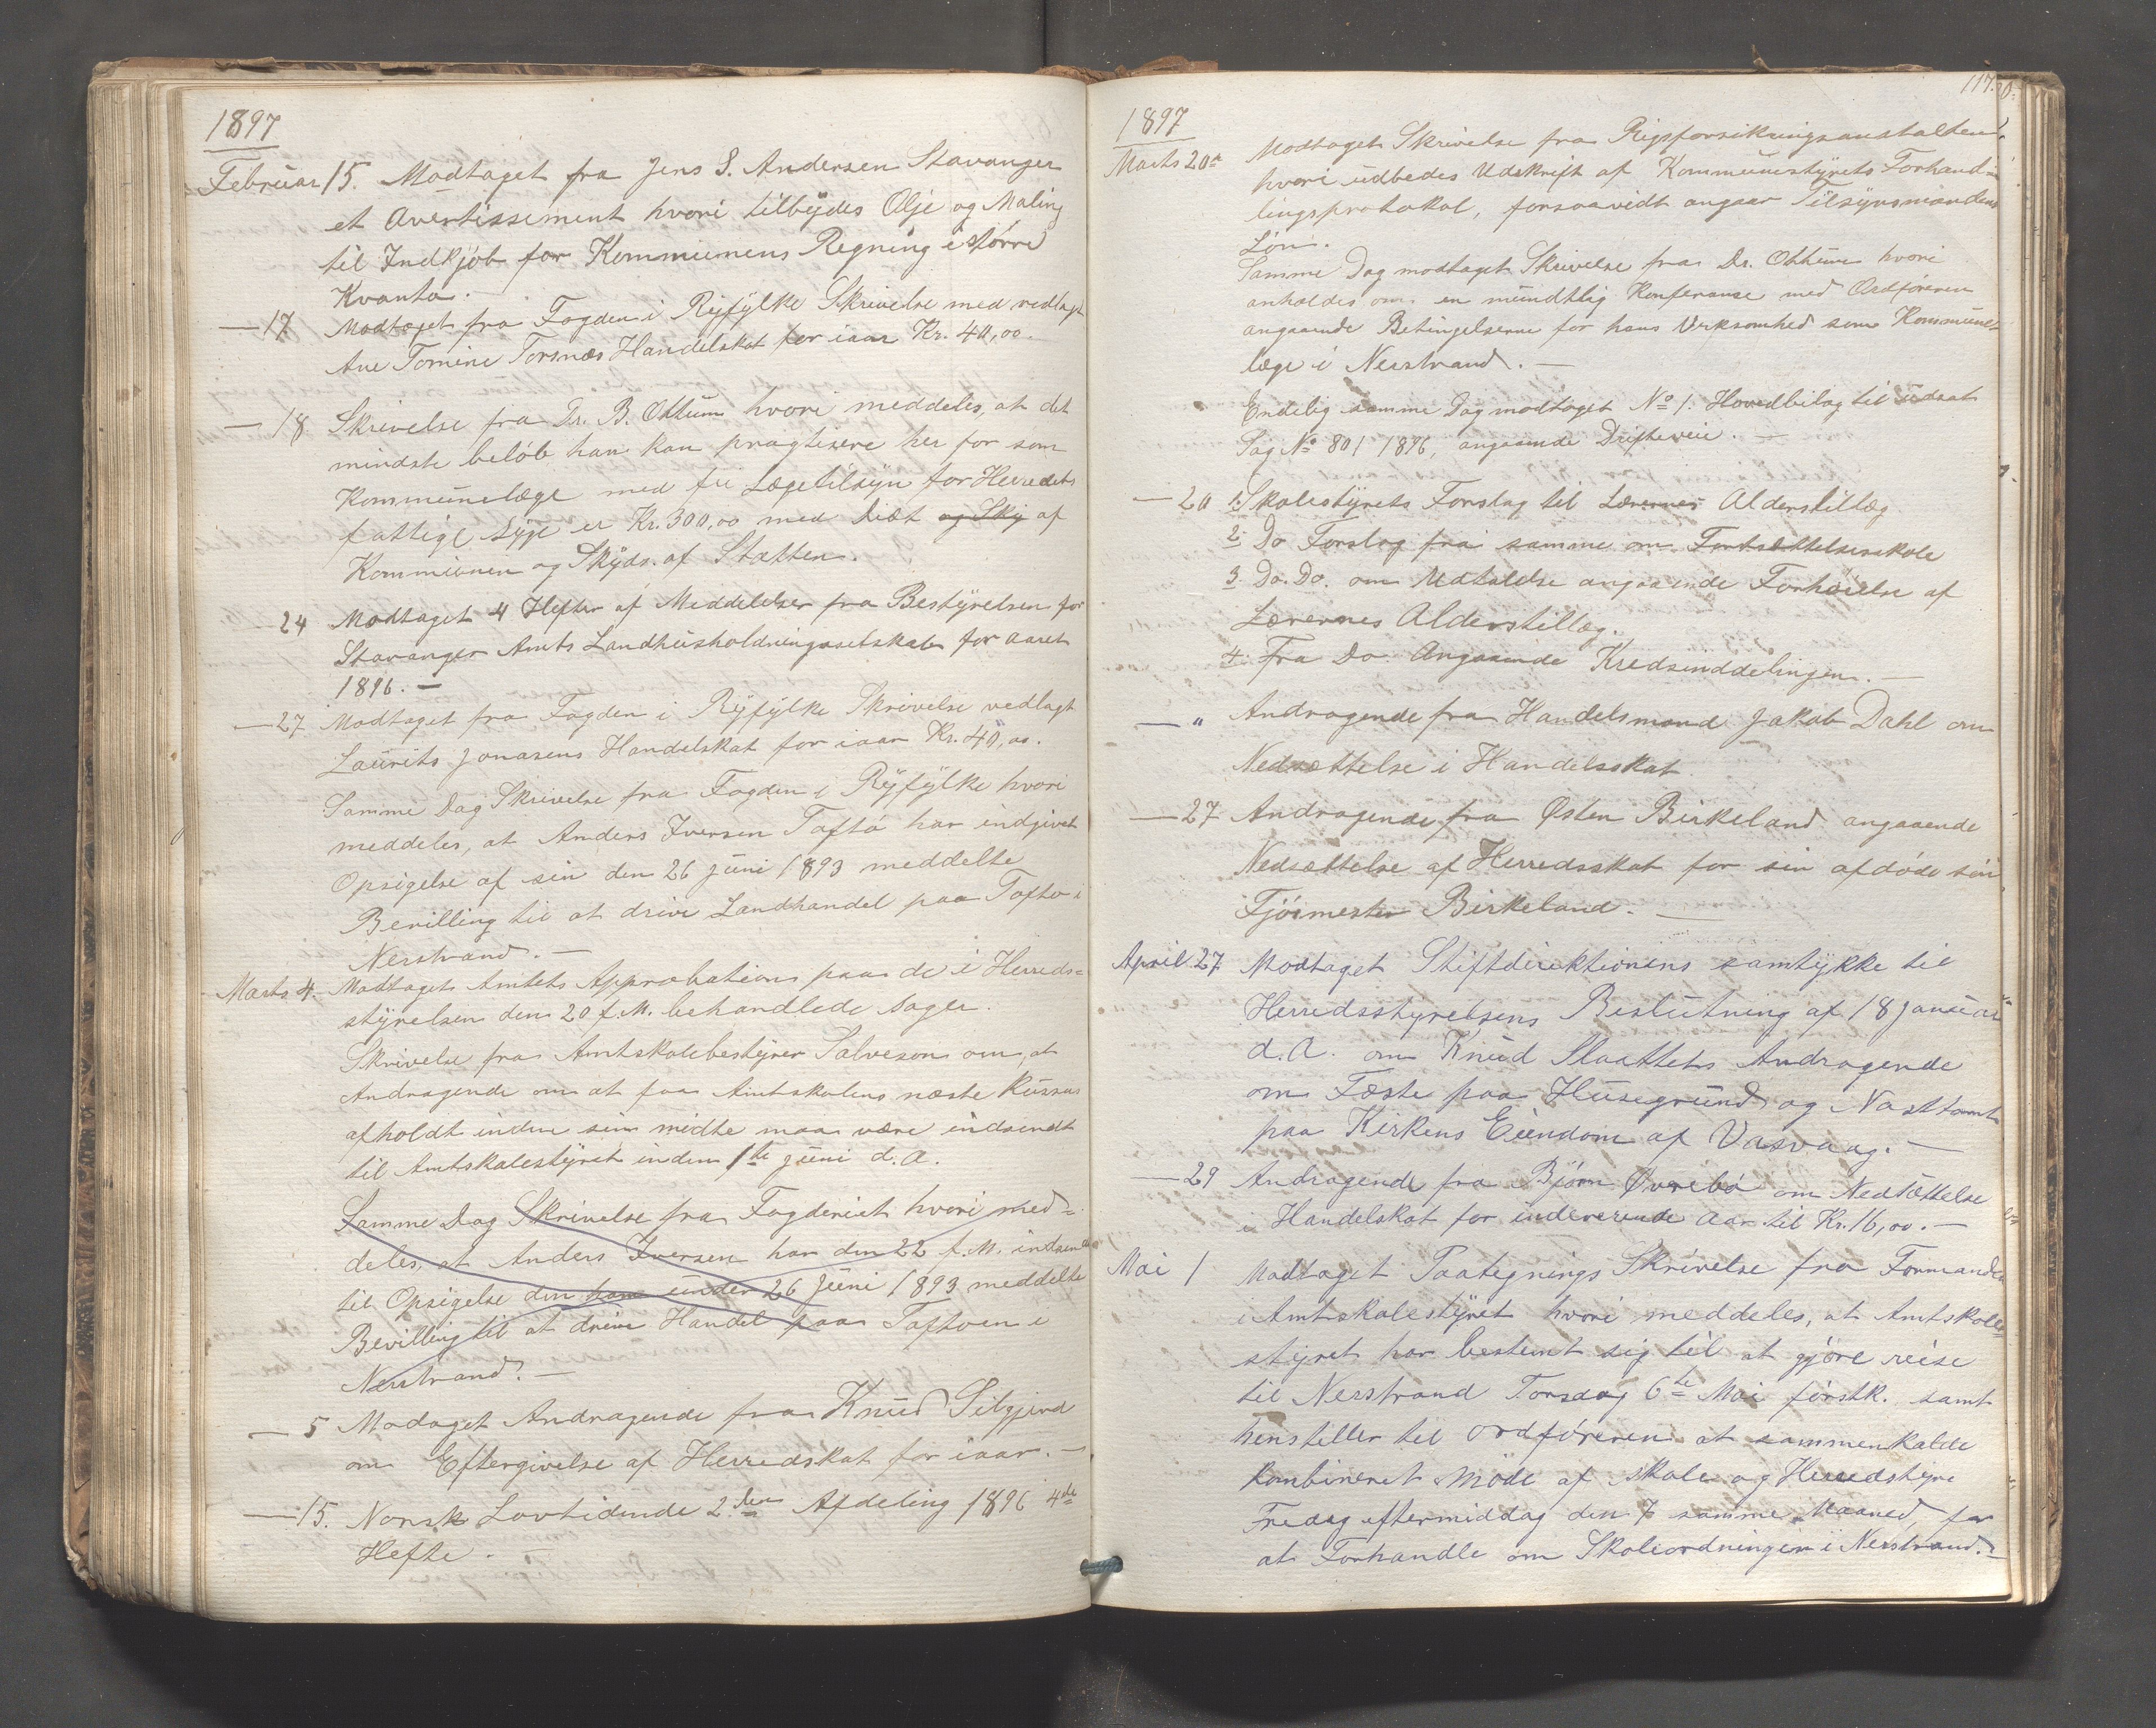 1897
Februar 15. Modtaget fra Jens S. Andersen Stavanger
et Avertissement hvori tilbydes Olje og Maling
til Indkjøb for Kommunens Regning i større
Kvanta.
— 17 Modtaget fra Fogden i Ryfylke Skrivelse med vedlagt
Ane Tomine Torsnæs Handelskat for iaar Kr. 40,00.
— 18 Skrivelse fra Dr. B. Ottum hvori meddeles, at det
mindste beløb han kan pragtisere her for som
Kommunelæge med fri Lægetilsyn for Herredets
fattige syge er Kr. 300,00 med Diæt og Sky af
Kommunen og Skyds. af Statten.
— 24 Modtaget 4 Hefter af Meddelelser fra Bestyrelsen for
Stavanger Amts Landhusholdningsselskab for aaret
1896. —
— 27 Modtaget fra Fogden i Ryfylke Skrivelse vedlagt
Laurits Jonasens Handelskat for iaar Kr. 40,00.
Samme Dag Skrivelse fra Fogden i Ryfylke hvori
meddeles, at Anders Iversen Toftø har indgivet
Opsigelse af sin den 26 juni 1893 meddelte
Bevilling til at drive Landhandel paa Tofto i
Nerstrand. —
Marts 4. Modtaget Amtets Approbation paa de i Herreds-
styrelsen den 20 f. M. behandlede sager.
Skrivelse fra Amtskolebestyrer Salveson om, at
Andragende om at faa Amtskolens næste Kursus
afholdt inden sin midte maa være indsendt
til Amtskolestyret inden 1te juni d. A.
Samme Dag Skrivelse fra Fogderiet hvori med-
deles, at Anders Iversen har den 22 f. M. indsendt
til Opsigelse den ham under 26 juni 1893 meddelte
Bevilling til at drive Handel paa Toftoen i
Nerstrand. —
— 5 Modaget Andragende fra Knud Silgjerd
om Eftergivelse af Herredskat for iaar. —
— 15. Norsk Lovtidende 2den Afdeling 1896 4de
Hefte. —
117.
1897
Marts 20de Modtaget Skrivelse fra Rigsforsikringsanstalten
hvori udbedes Udskrift af Kommunestyrets Forhand-
lingsprotokol, forsaavidt angaar Tilsynsmandens
Løn.
Samme Dag modtaget Skrivelse fra Dr. Ottum hvori
anholdes om en mundtlig Konferanse med Ordføreren
angaaende Betingelserne for hans Virksomhed som Kommune-
læge i Nerstrand. —
Endelig samme Dag modtaget No 1. Hovedbilag til udsat
Sag No 80/1896, angaaende Drifteveie. —
— 20 1. Skolestyrets Forslag til Lærernes Alderstillæg
2. Do Forslag fra samme om Fortsættelsesskole
3. Do. Do. om Udtalelse angaaende Forhøielse af
Lærernes Alderstillæg.
4. Fra Do. Angaaende Kredsinddelingen. —
— " Andragende fra Handelsmand Jakob Dahl om
Nedsættelse i Handelsskat
— 27 Andragende fra Østen Birkeland angaaende
Nedsættelse af Herredsskat for sin afdøde søn
Fjøsmester Birkeland. —
April 27 Modtaget Stiftdirektionens samtykke til
Herredsstyrelsens Beslutning af 18 januar
d. A. om Knud Slaattets Andragende
om Fæste paa Husegrund og Nosttomt
paa Kirkens Eiendom af Vasvaag. —
— 29 Andragende fra Bjørn Øvrebø om Nedsættelse
i Handelskat for indeværende Aar til Kr. 16,00. —
Mai 1 Modtaget Paategnings Skrivelse fra Formanden
i Amtskolestyret hvori meddeles, at Amtskole-
styret har bestemt sig til at gjøre reise
til Nerstrand Torsdag 6te Mai førstk. samt
henstiller til Ordføreren at sammenkalde
kombineret møde af skole og Herredstyre
Fredag eftermiddag den 7 samme Maaned, for
at Forhandle om Skoleordningen i Nerstrand. —